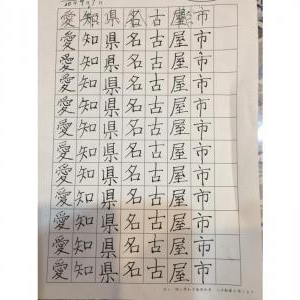 愛知県名古屋市
愛知県名古屋市
愛知県名古屋市
愛知県名古屋市
愛知県名古屋市
愛知県名古屋市
愛知県名古屋市
愛知県名古屋市
愛知県名古屋市
愛知県名古屋市
愛知県名古屋市
愛知県名古屋市